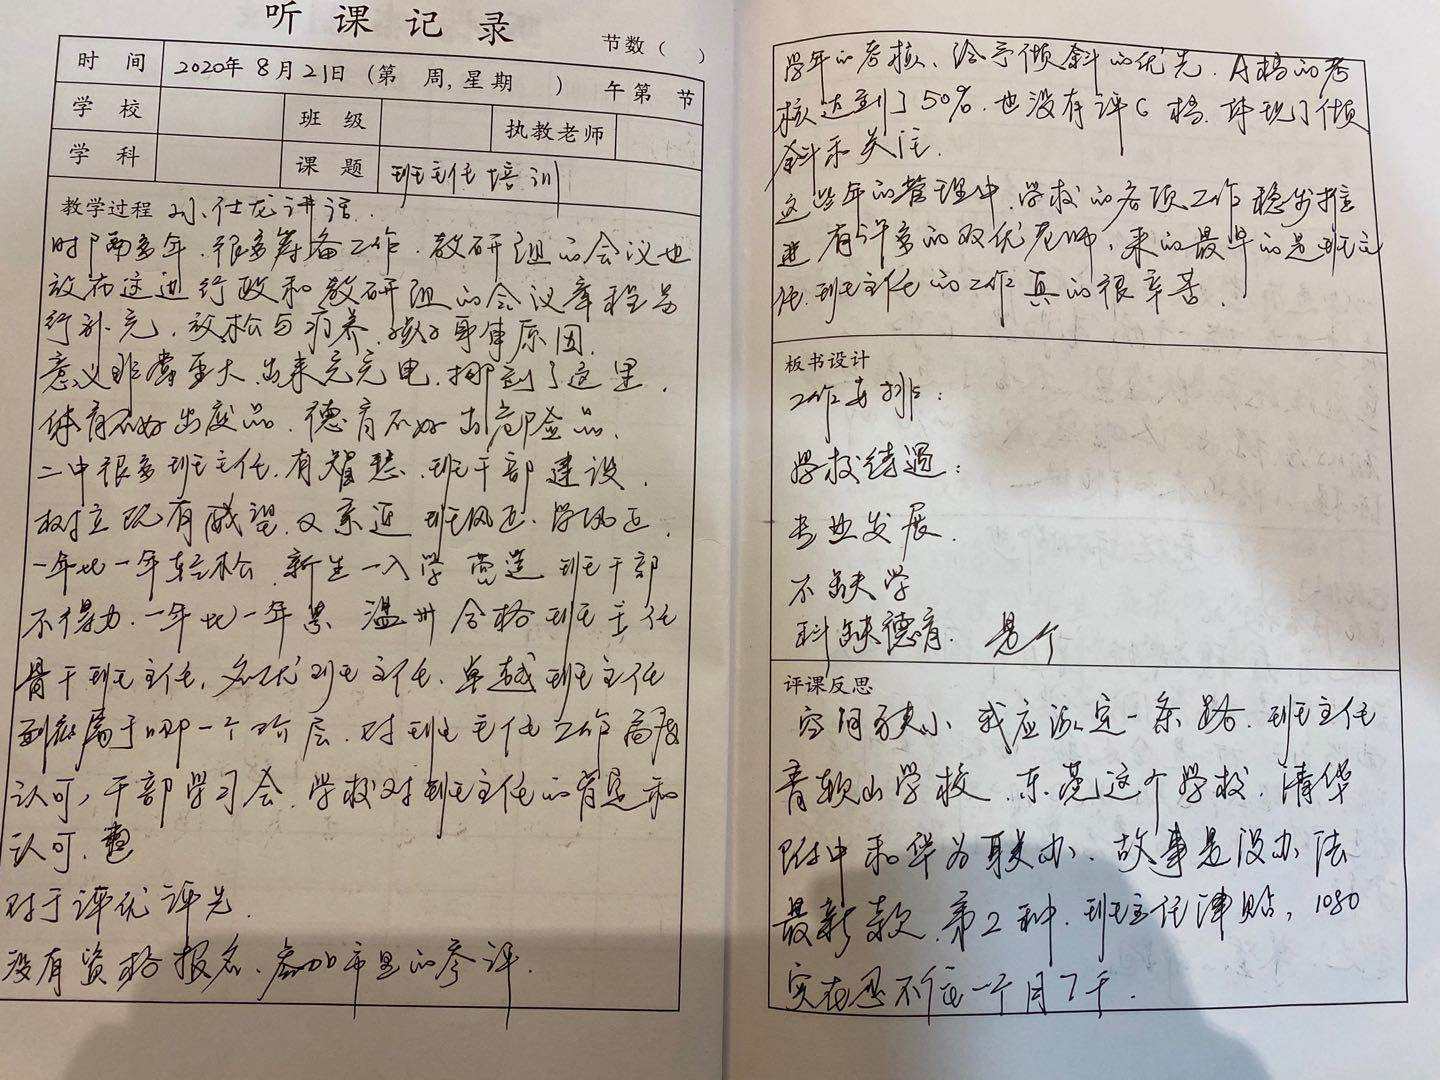 听课记录
节数（ ）
时间 2020年8月21日（第 周,星期 ） 午第 节
学校 班级 执教老师
学科 课题 班主任培训
教学过程 孙仕龙讲话.
时隔两多年.很多筹备工作.教研组的会议也
放在这边 行政和教研组的会议章程另
行补充.放松与疗养. 身体原因.
意义非常重大.出来充充电.挪到了这里.
体育不好出废品.德育不好出危险品.
二中很多班主任.有智慧.班干部建设.
树立既有威望.又亲近 班风正.学风正.
一年比一年轻松.新生一入学 营造 班干部
不得力.一年比一年累 温州合格班主任
骨干班主任.名优班主任.卓越班主任
到底属于哪一个阶层.对班主任工作高度
认可,干部学习会.学校对班主任的肯定和
认可.
对于评优评先.
没有资格报名.参加市里的参评.
学年的考核、给予倾斜的优先.A格的考
核达到了50%.也没有评C格.体现了倾
斜和关注.
这学年的管理中.学校的各项工作稳步推
进 有许多的双优老师,来的最早的是班主
任.班主任的工作真的很辛苦.
板书设计
工作安排：
学校待遇：
专业发展.
不缺学
科缺德育. 是个
评课反思
空间狭小 我应该定一条路.班主任
育 山学校.东莞这个学校.清华
附中和华为联办.故事是没办法
最新款.第2种.班主任津贴,1080
实在忍不住一个月7千.